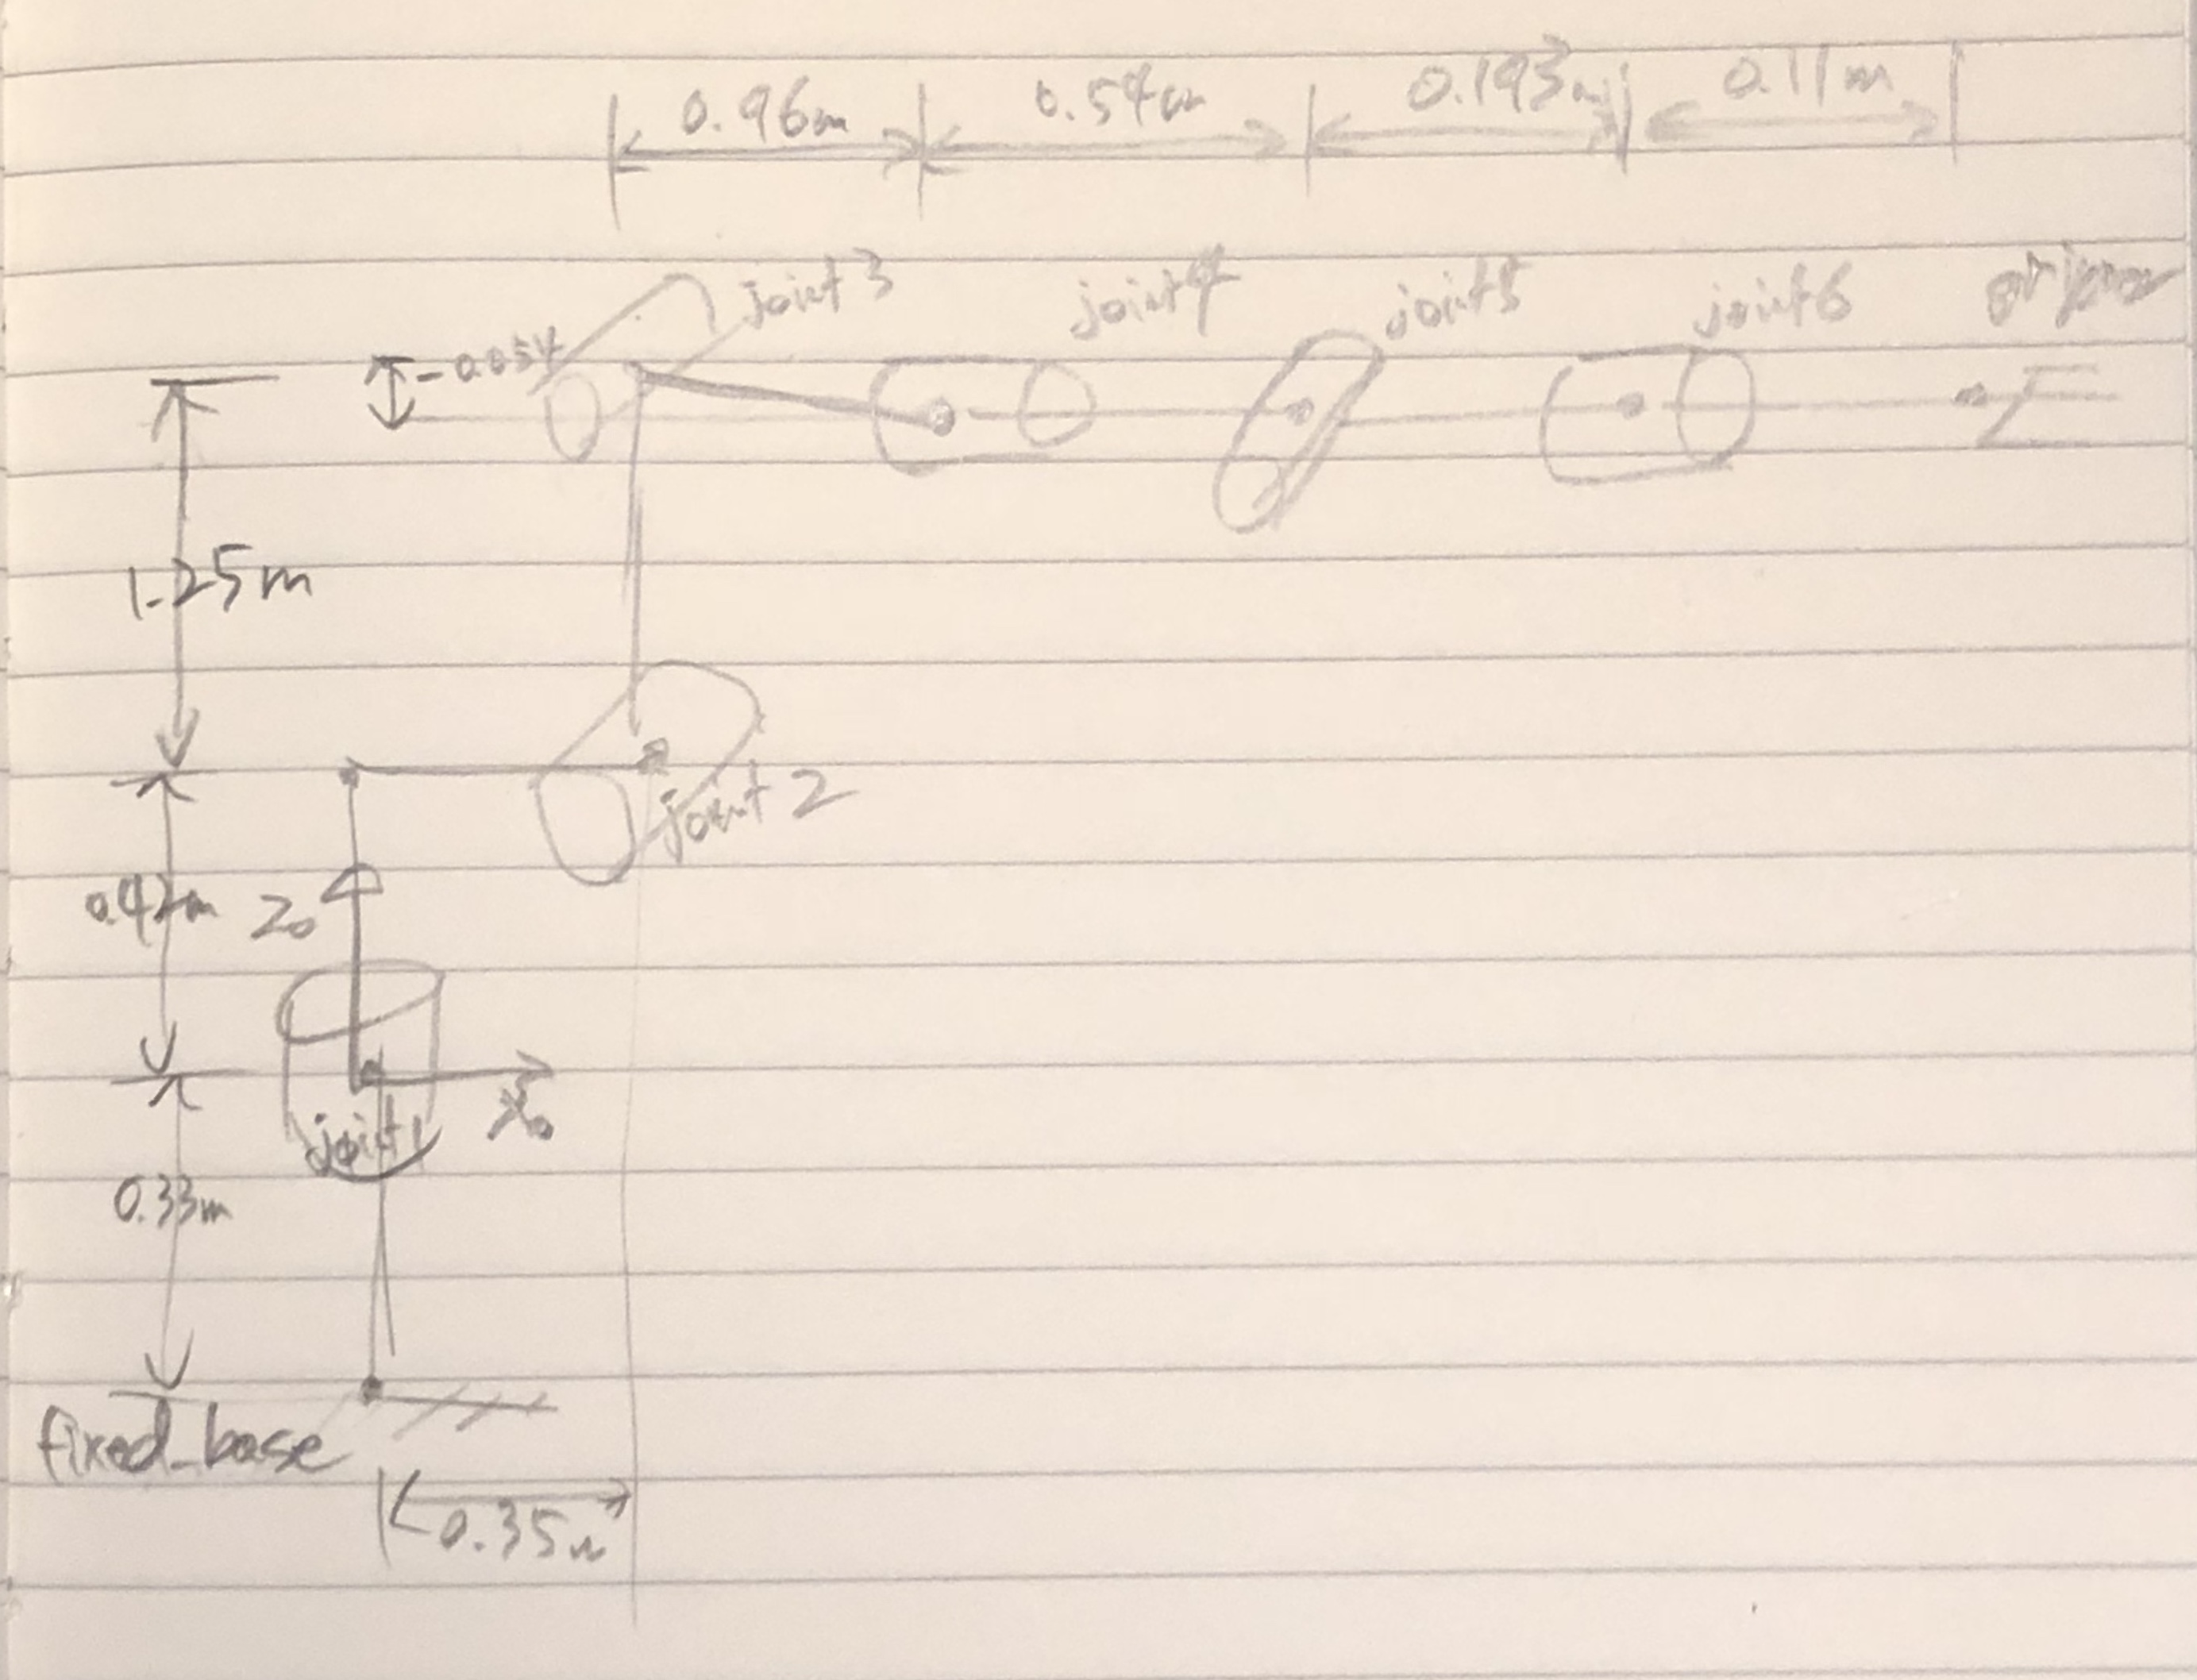 0.96m 0.54m 0.193m 0.11m
joint3 joint4 joint5 joint6
-0.054
1.25m
joint2
0.42m Z0
X0
joint1
0.33m
fixed_base
0.35m